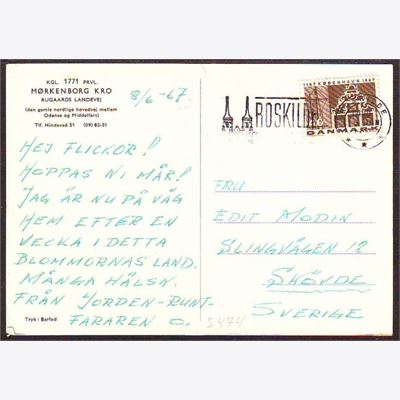 KGL. 1771 PRVL.
MØRKENBORG KRO
RUGAARDS LANDEVEJ
(den gamle nordlige hovedvej mellem
Odense og Middelfars)
Tlf. Hindevad 51 (09) 83-51
8/6-67.
1167 KØBENHAVN 1967
DANMARK
ROSKILDE
HEJ FLICKOR!
HOPPAS NI MÅR!
JAG ÄR NU PÅ VÄG
HEM EFTER EN
VECKA I DETTA
BLOMMORNAS LAND.
MÅNGA HÄLSN.
FRÅN JORDEN-RUNT-
FARAREN O.
Tryk: Barfod
5474
FRU
EDIT MODIN
SLINGVÄGEN 12
SKÖVDE
SVERIGE